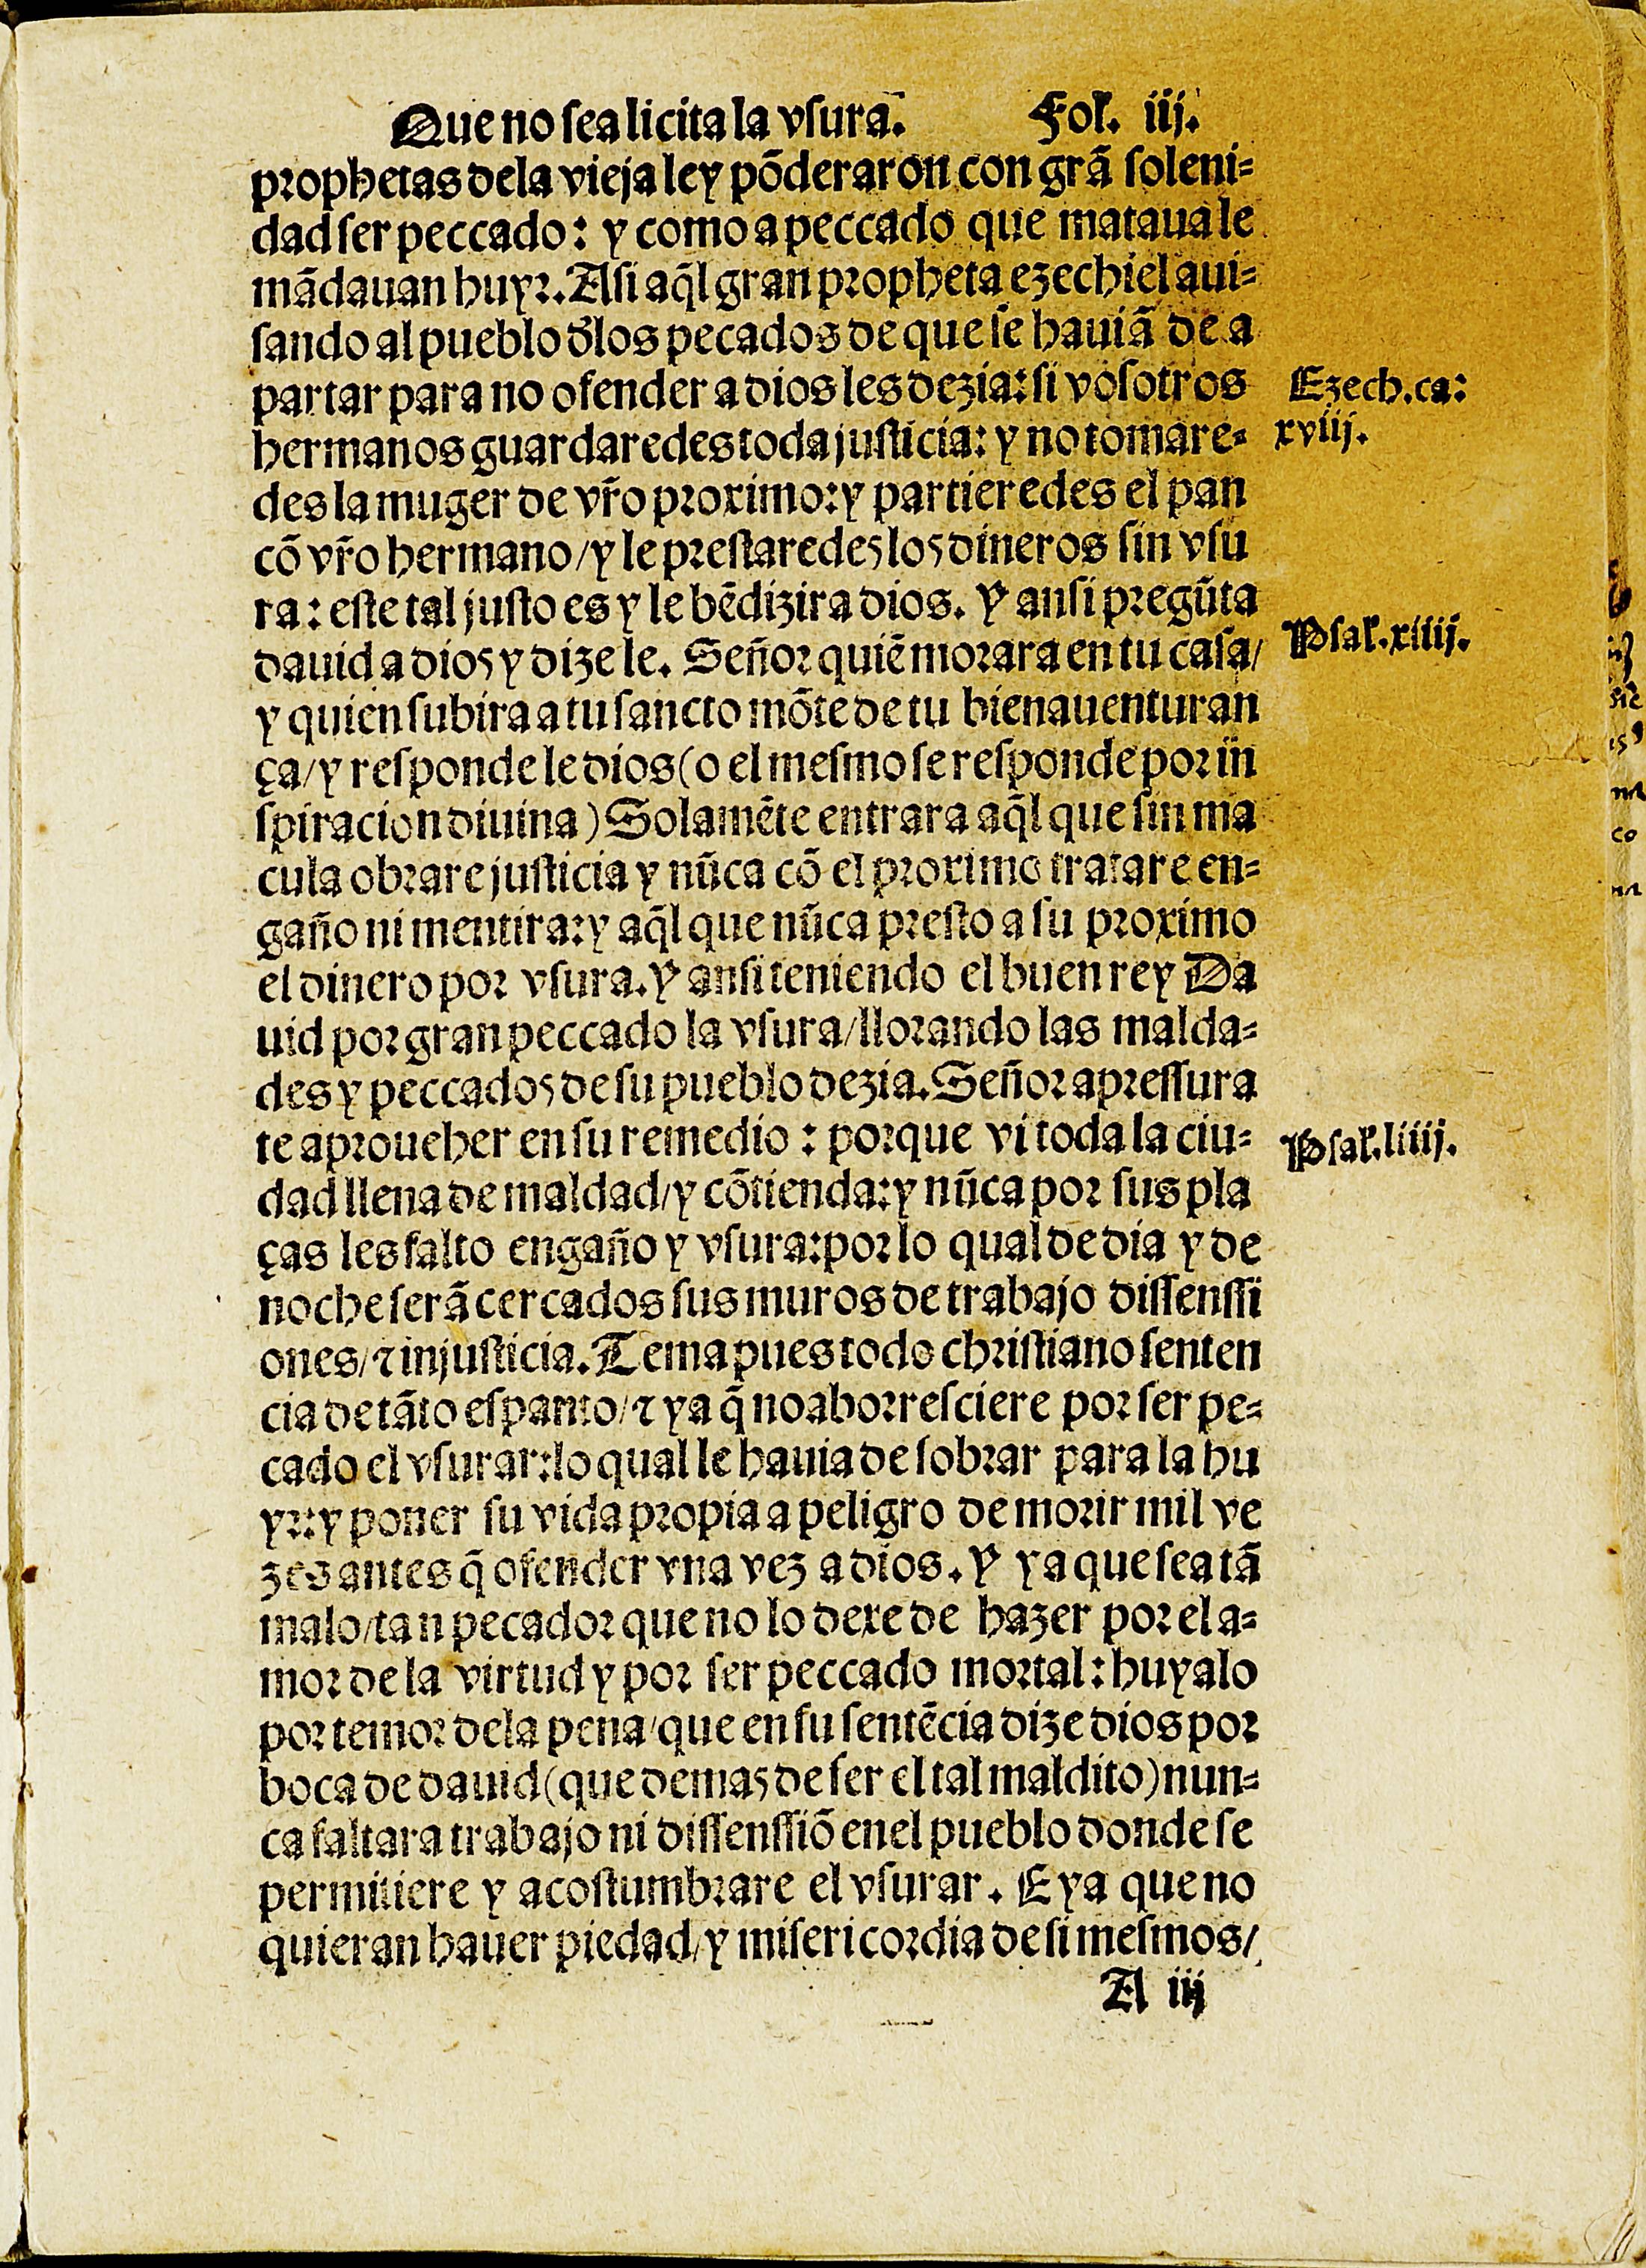 Que no sea licita la vsura. Fol. iij.
prophetas dela vieja ley põderaron con grã soleni=
dad ser peccado: y como a peccado que mataua le
mãdauan huyr. Asi aq̃l gran propheta ezechiel aui=
sando al pueblo d̃los pecados de que se hauiã de a
partar para no ofender a dios les dezia: si vosotros
Ezech. ca:
xviij.
hermanos guardaredes toda justicia: y no tomare=
des la muger de vr̃o proximo: y partieredes el pan
cõ vr̃o hermano/ y le prestaredes los dineros sin vsu
ra: este tal justo es y le bẽdizira dios. Y ansi pregũta
dauid a dios y dize le. Señor quiẽ morara en tu casa/
Psal. xiiij.
y quien subira a tu sancto mõte de tu bienauenturan
ça/ y responde le dios (o el mesmo se responde por in
spiracion diuina) Solamẽte entrara aq̃l que sin ma
cula obrare justicia y nũca cõ el proximo tratare en=
gaño ni mentira: y aq̃l que nũca presto a su proximo
el dinero por vsura. Y ansi teniendo el buen rey Da
uid por gran peccado la vsura/ llorando las malda=
des y peccados de su pueblo dezia. Señor apressura
te a proueher en su remedio: porque vi toda la ciu=
Psal. liiij.
dad llena de maldad/ y cõtienda: y nũca por sus pla
ças les falto engaño y vsura: por lo qual de dia y de
noche serã cercados sus muros de trabajo dissenssi
ones/ ⁊ injusticia. Tema pues todo christiano senten
cia de tãto espanto/ ⁊ ya q̃ no aborresciere por ser pe=
cado el vsurar: lo qual le hauia de sobrar para la hu
yr: y poner su vida propia a peligro de morir mil ve
zes antes q̃ ofender vna vez a dios. Y ya que sea tã
malo/ tan pecador que no lo dexe de hazer por el a=
mor de la virtud y por ser peccado mortal: huyalo
por temor dela pena/ que en su sentẽcia dize dios por
boca de dauid (que demas de ser el tal maldito) nun=
ca faltara trabajo ni dissenssiõ enel pueblo donde se
permitiere y acostumbrare el vsurar. E ya que no
quieran hauer piedad/ y misericordia de si mesmos/
A iij